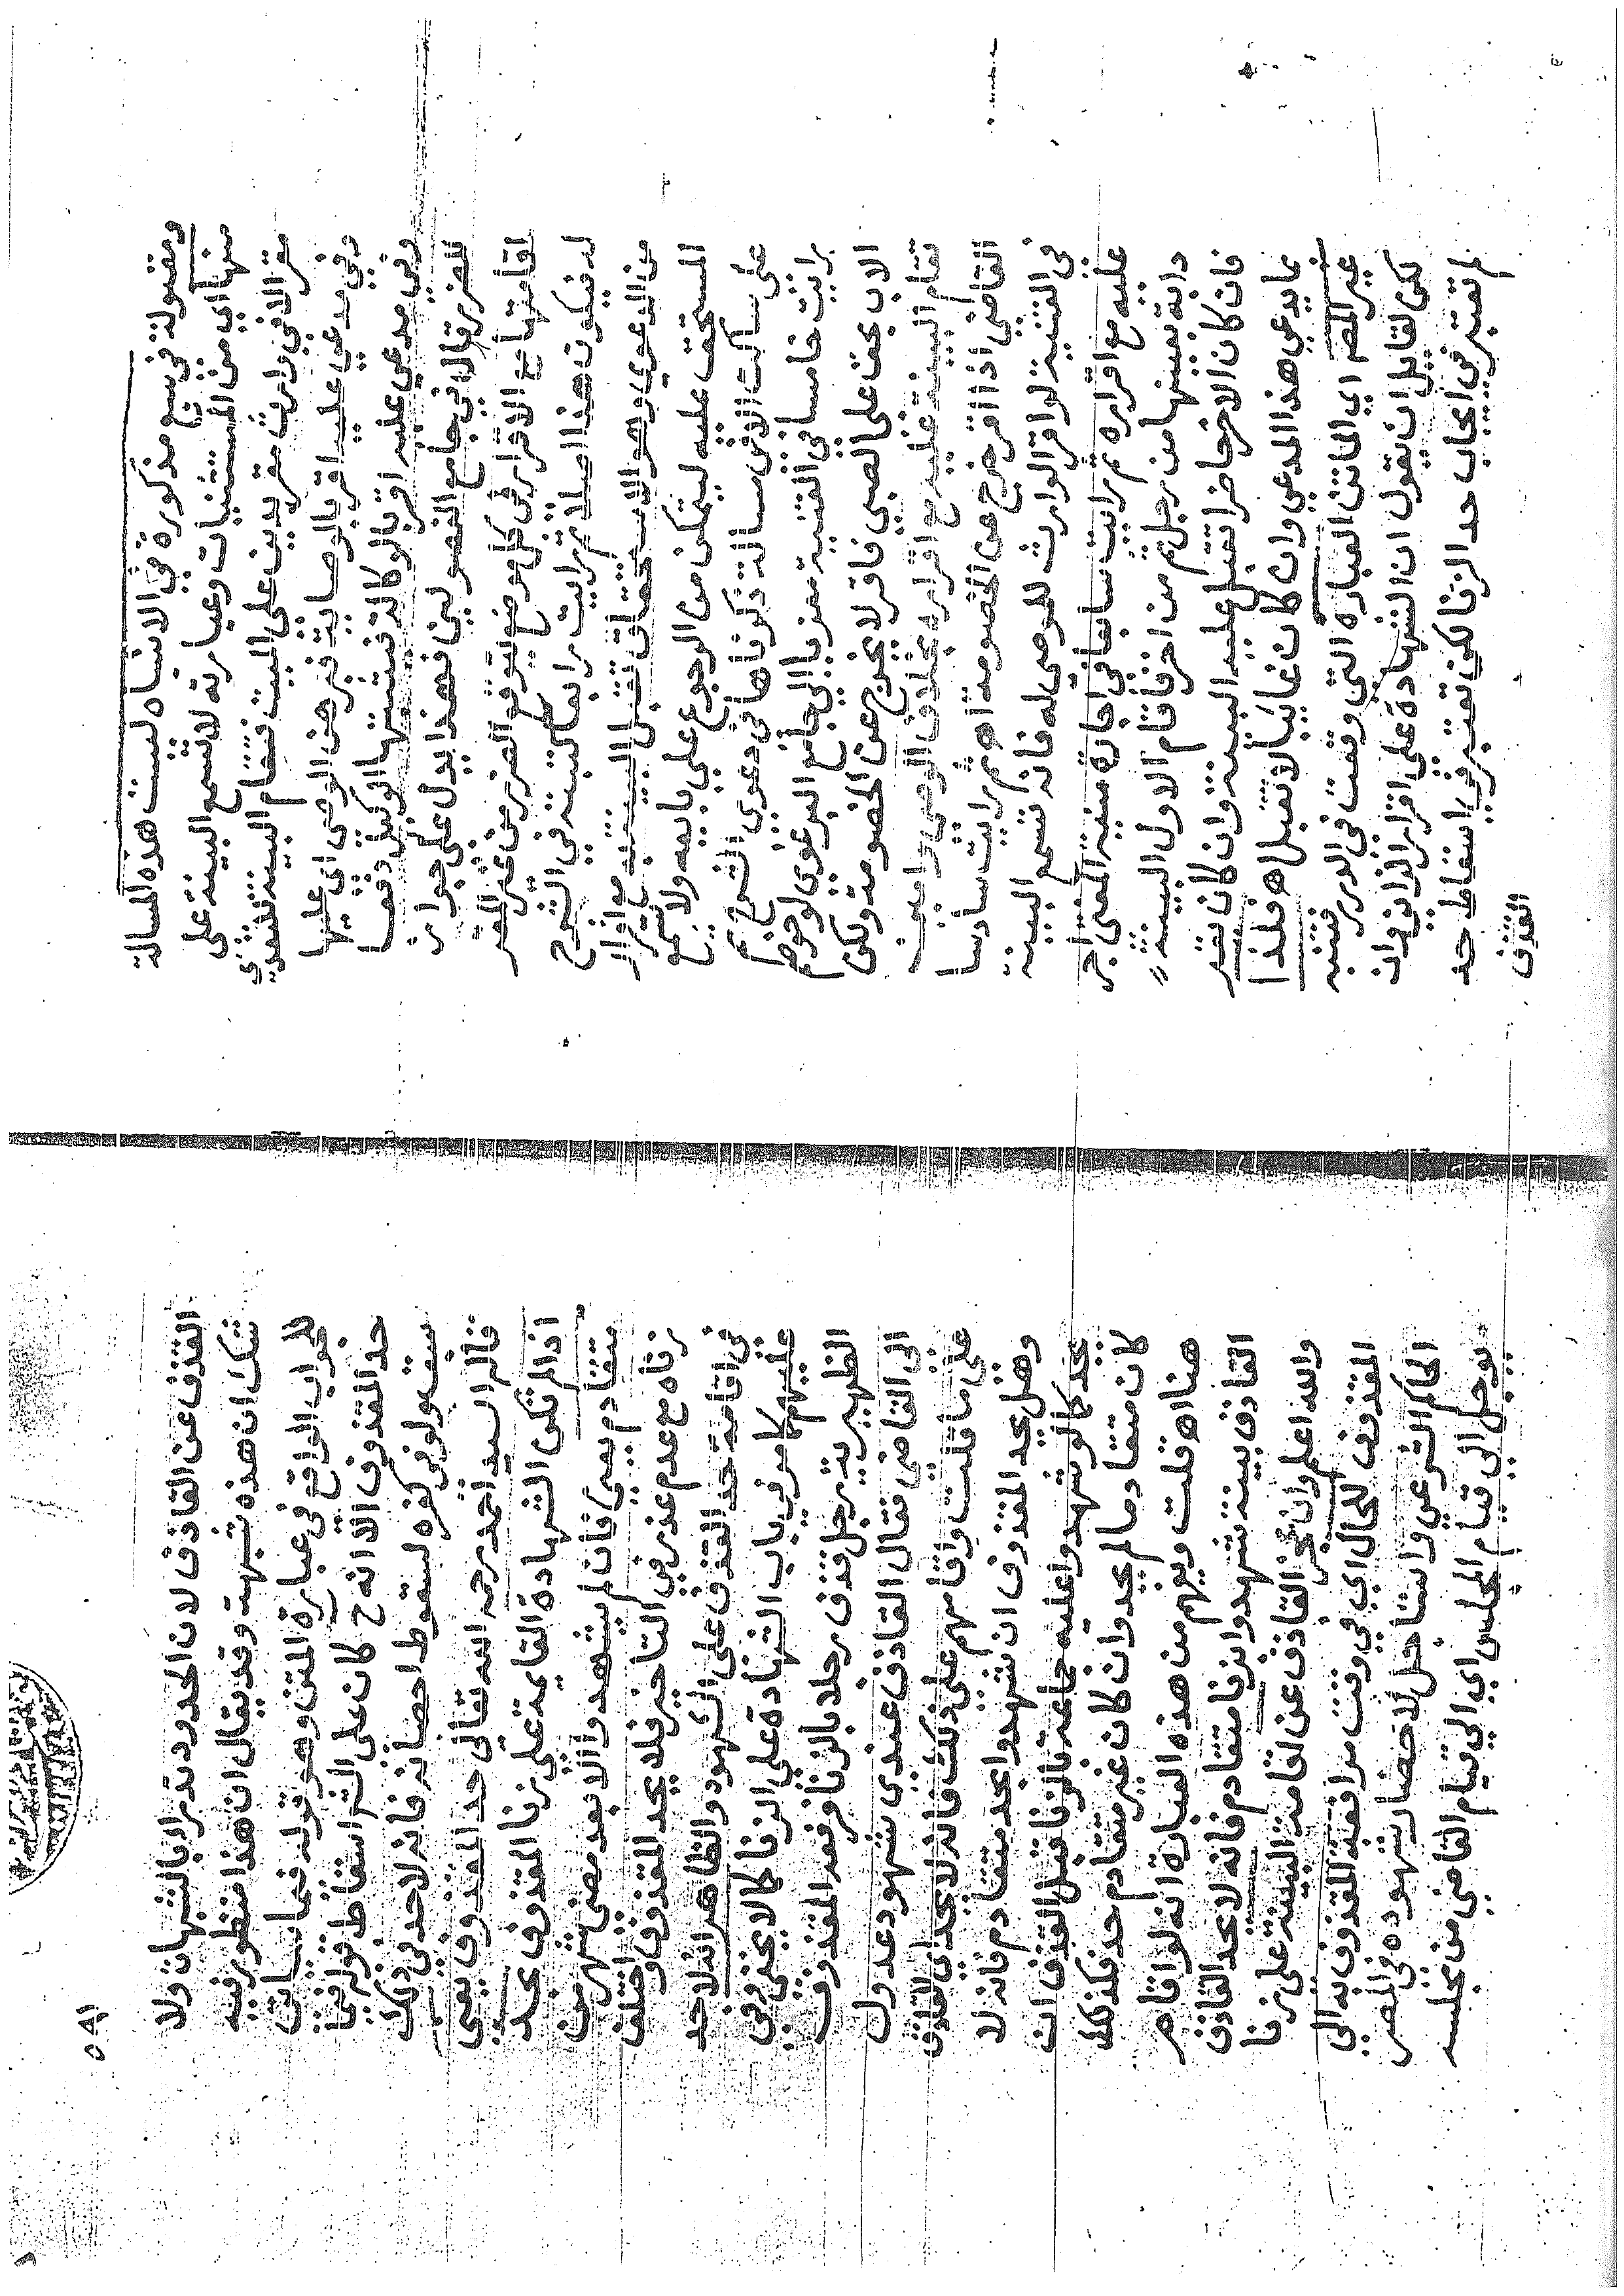 ومقبولة في سبع مذكورة في الاشباه ليست هذه المسالة
منها اي من المستثنيات وعبارته لا تسمع البينة على
مقر الا في وارث مقر بدين على الميت فتقام البينة للتعدي
وفي مدعى عليه اقر بالوصاية فبرهن الوصي اي عليها
وفي مدعى عليه اقر بالوكالة فيثبتها الوكيل دفعا
للضرر قال في جامع الفصولين فهذا يدل على جواز
اقامتها مع الاقرار في كل موضع يتوقع الضرر من غير المقر
له فيكون هذا اصلا ثم رايت رابعا كتبته في الشرح
من الدعوى وهو الاستحقاق تقبل البينة به مع اقرار
المستحق عليه ليتمكن من الرجوع على بايعه ولا تسمع
على ساكت الا في مسالة ذكرناها في دعوى الشرح ثم
رايت خامسا في القنية معزيا الى جامع البرغوي لو خوصم
الاب بحق على الصبي فاقر لا يخرج عن الخصومة ولكن
تقام البينة عليه مع اقراره بخلاف الوصي وامين
القاضي اذا اقر خرج عن الخصومة اهـ ثم رايت سادسا
في القنية لو اقر الوارث للموصى له فانه تسمع البينة
عليه مع اقراره ثم رايت سابعا في اجارة منية المفتي اجر
دابة بعينها من رجل ثم من اخر فاقام الاول البينة
فان كان الاخر حاضرا تقبل عليه البينة وان كان يقر
بما يدعي هذا المدعي وان كان غايبا لا تقبل اهـ فلذا
غير المص اي الماتن العبارة التي وقعت في الدرر فتنبه
لكن لقايل ان يقول ان الشهادة على اقرار الزاني وان
لم تعتبر في ايجاب حد الزنا لكن تعتبر في اسقاط حد
القذف
٥٨١
القذف عن القاذف لان الحدود تدرا بالشبهات ولا
شك ان هذه شبهة وقد يقال ان هذا منظور فيه
للجواب الواقع في عبارة المتن وهو قوله فيما ياتي
حد المقذوف الا انه ح كان على الشر اسقاط قوله فيما
سبق ولو في كفره لسقوط احصانه فانه لا حد في ذلك
قاله السيد احمد رحمه الله تعالى حد المقذوف يعني
اذا لم تكن الشهادة القايمة على زنا المقذوف بحد
متقادم يعني فان لم يشهدوا الا بعد مضي شهر من
زناه مع عدم عذر في التاخير فلا يحد المقذوف واختلف
في اقامة حد القذف على الشهود والظاهر انه لا حد
عليهم كما مر في باب الشهادة على الزنا كما لا يخفى وفي
الظهيرية رجل قذف رجلا بالزنا فرفعه المقذوف
الى القاضي فقال القاذف عندي شهود عدول
على ما قلت واقامهم على ذلك فانه لا يحد اي القاذف
وهل يحد المقذوف ان شهدوا بحد متقادم فانه لا
يحد كما لو شهدوا عليه جماعة بالزنا قبل القذف ان
كان متقادما لم يحد وان كان غير متقادم حد فكذلك
هنا اهـ قلت ويفهم من هذه العبارة انه لو اقام
القاذف بينة شهدوا بزنا متقادم فانه لا يحد القاذف
والله اعلم وان عجز القاذف عن اقامة البينة على زنا
المقذوف للحال اي في وقت مرافعة المقذوف به الى
الحاكم الشرعي واستاجل لاحضار شهوده في المصر
يوجل الى قيام المجلس اي الى قيام القاضي من مجلسه